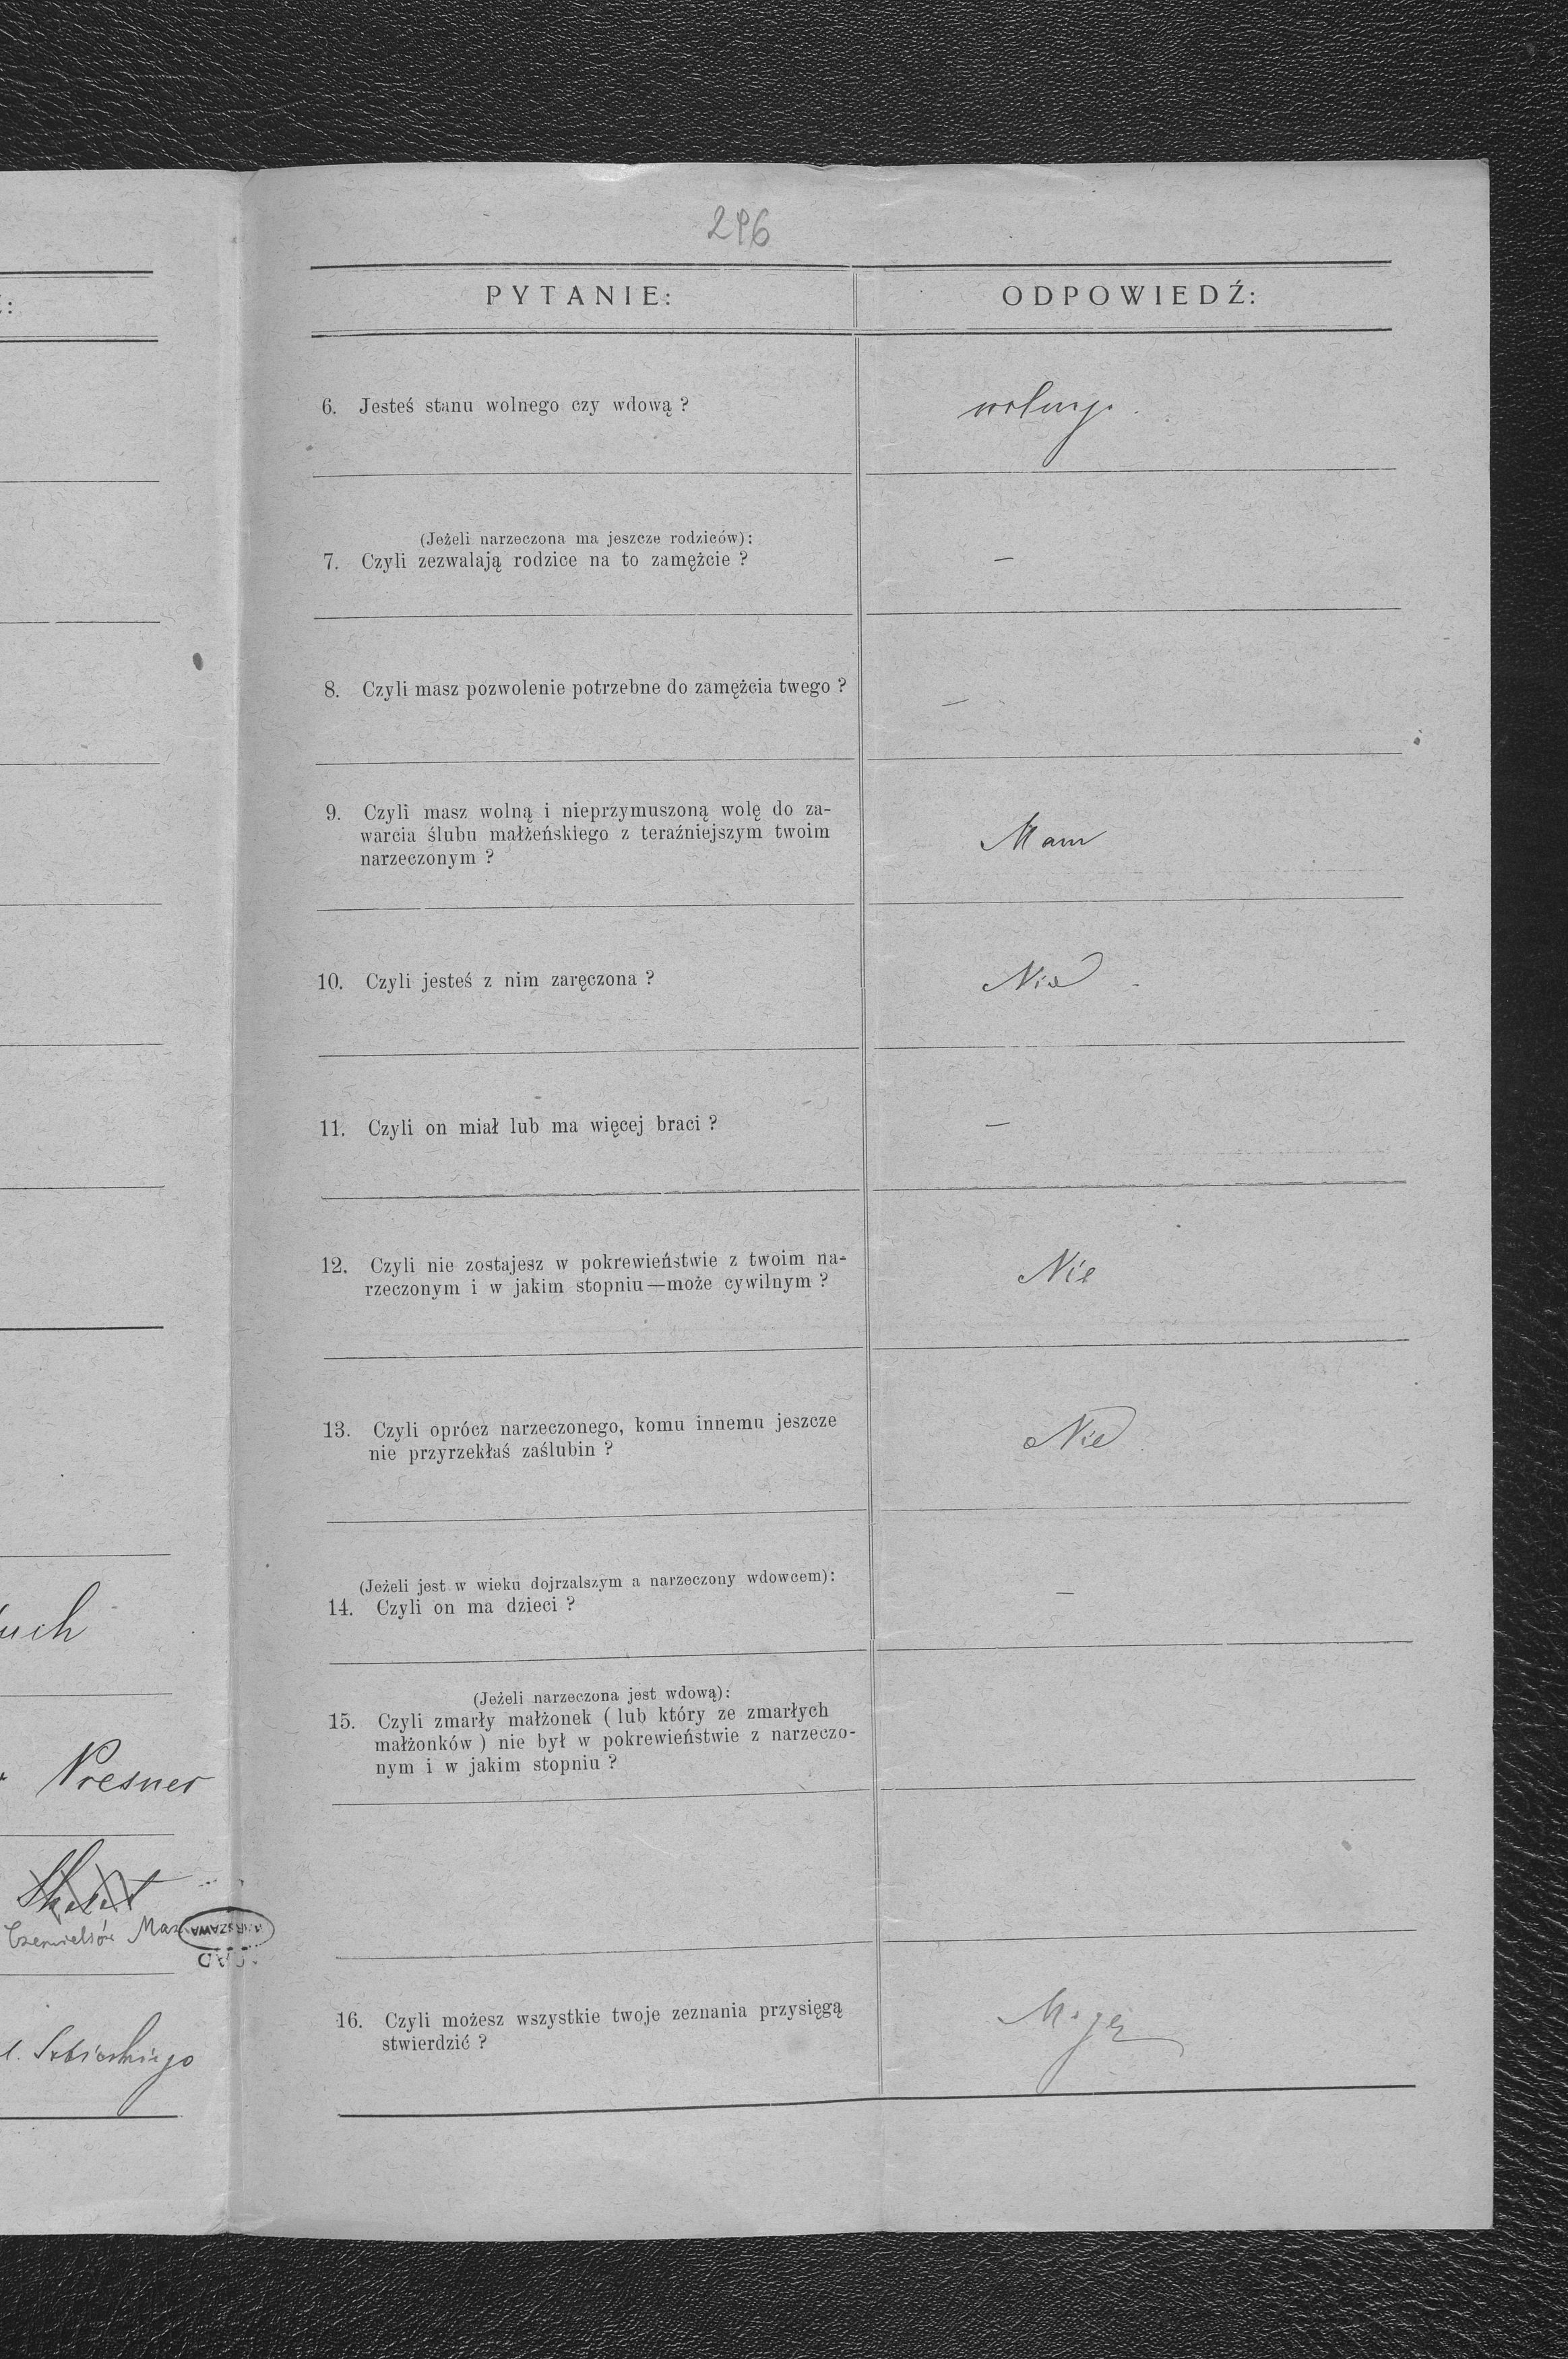 296
PYTANIE:
ODPOWIEDŹ:
6. Jesteś stanu wolnego czy wdową ?
wolnego.
(Jeżeli narzeczona ma jeszcze rodziców):
7. Czyli zezwalają rodzice na to zamężcie ?
—
8. Czyli masz pozwolenie potrzebne do zamężcia twego ?
—
9. Czyli masz wolną i nieprzymuszoną wolę do za-
warcia ślubu małżeńskiego z teraźniejszym twoim
narzeczonym ?
Mam
10. Czyli jesteś z nim zaręczona ?
Nie
11. Czyli on miał lub ma więcej braci ?
—
12. Czyli nie zostajesz w pokrewieństwie z twoim na-
rzeczonym i w jakim stopniu—może cywilnym ?
Nie
13. Czyli oprócz narzeczonego, komu innemu jeszcze
nie przyrzekłaś zaślubin ?
Nie
(Jeżeli jest w wieku dojrzalszym a narzeczony wdowcem):
14. Czyli on ma dzieci ?
—
(Jeżeli narzeczona jest wdową):
15. Czyli zmarły małżonek ( lub który ze zmarłych
małżonków ) nie był w pokrewieństwie z narzeczo-
nym i w jakim stopniu ?
16. Czyli możesz wszystkie twoje zeznania przysięgą
stwierdzić ?
Mogę
uch
Presner
Skałat
WARSZAWA
AGAD
l. Sobieskiego